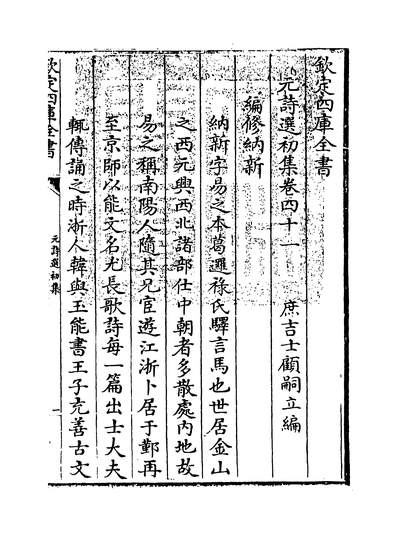 欽定四庫全書
元詩選初集卷四十一
庶吉士顧嗣立編
編修納新
納新字易之本葛邏祿氏驛言馬也世居金山
之西元興西北諸部仕中朝者多散處內地故
易之稱南陽人隨其兄宦遊江浙卜居于鄞再
至京師以能文名尤長歌詩每一篇出士大夫
輒傳誦之時浙人韓與玉能書王子充善古文
欽定四庫全書
元詩選初集
一